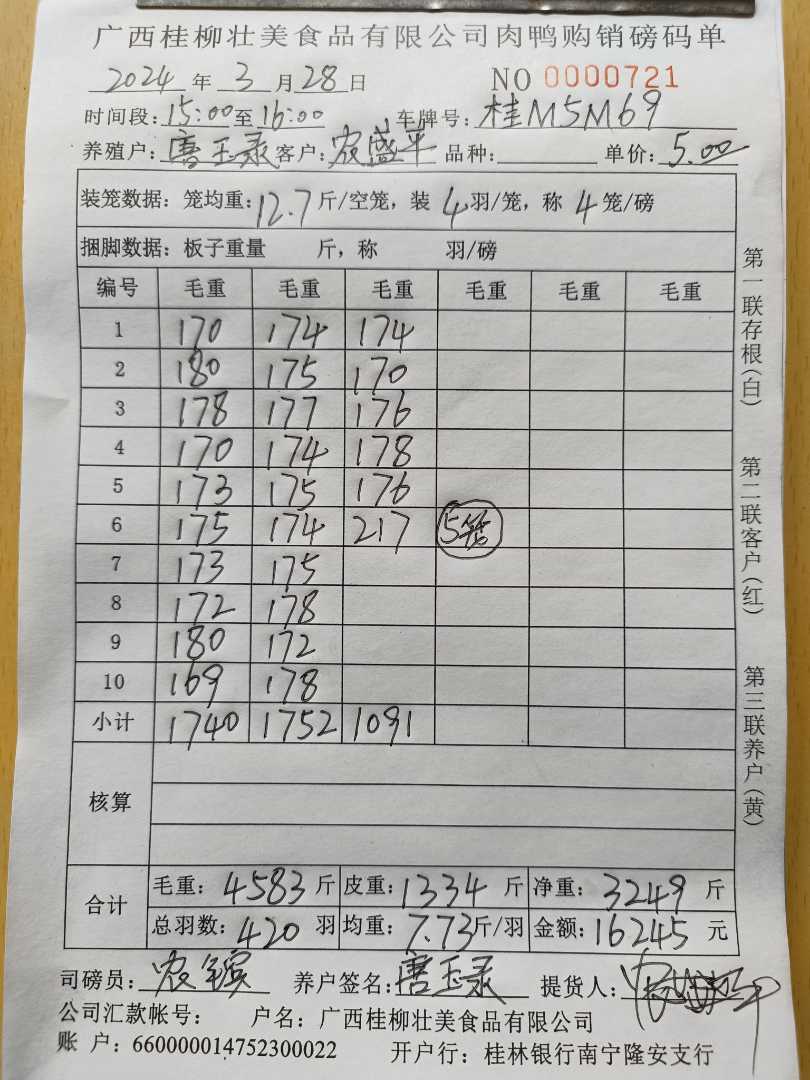 广西桂柳壮美食品有限公司肉鸭购销磅码单
2024 年 3 月 28 日 NO 0000721
时间段:15:00至16:00 车牌号:桂M5M69
养殖户:唐玉录 客户:农盛平 品种: 单价:5.00
装笼数据: 笼均重:12.7斤/空笼, 装 4 羽/笼, 称 4 笼/磅
捆脚数据: 板子重量 斤, 称 羽/磅
编号 毛重 毛重 毛重 毛重 毛重 毛重
1 170 174 174
2 180 175 170
3 178 177 176
4 170 174 178
5 173 175 176
6 175 174 217 5笼
7 173 175
8 172 178
9 180 172
10 169 178
小计 1740 1752 1091
核算
合计 毛重: 4583 斤 皮重: 1334 斤 净重: 3249 斤
总羽数: 420 羽 均重: 7.73斤/羽 金额: 16245 元
司磅员: 农 养户签名: 唐玉录 提货人:
公司汇款帐号: 户名: 广西桂柳壮美食品有限公司
账 户: 660000014752300022 开户行: 桂林银行南宁隆安支行
第一联存根(白)
第二联客户(红)
第三联养户(黄)